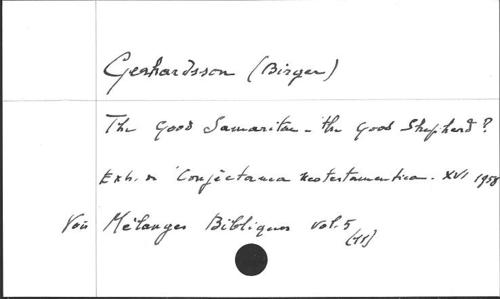 Gerhardsson (Birger)
The Good Samaritan - the Good Shepherd?
Extr. de Conjectanea neotestamentica. XVI 1958
Voir Mélanges Bibliques vol. 5